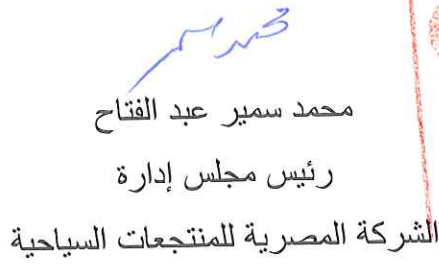 محمد سمير عبد الفتاح
رئيس مجلس إدارة
الشركة المصرية للمنتجعات السياحية